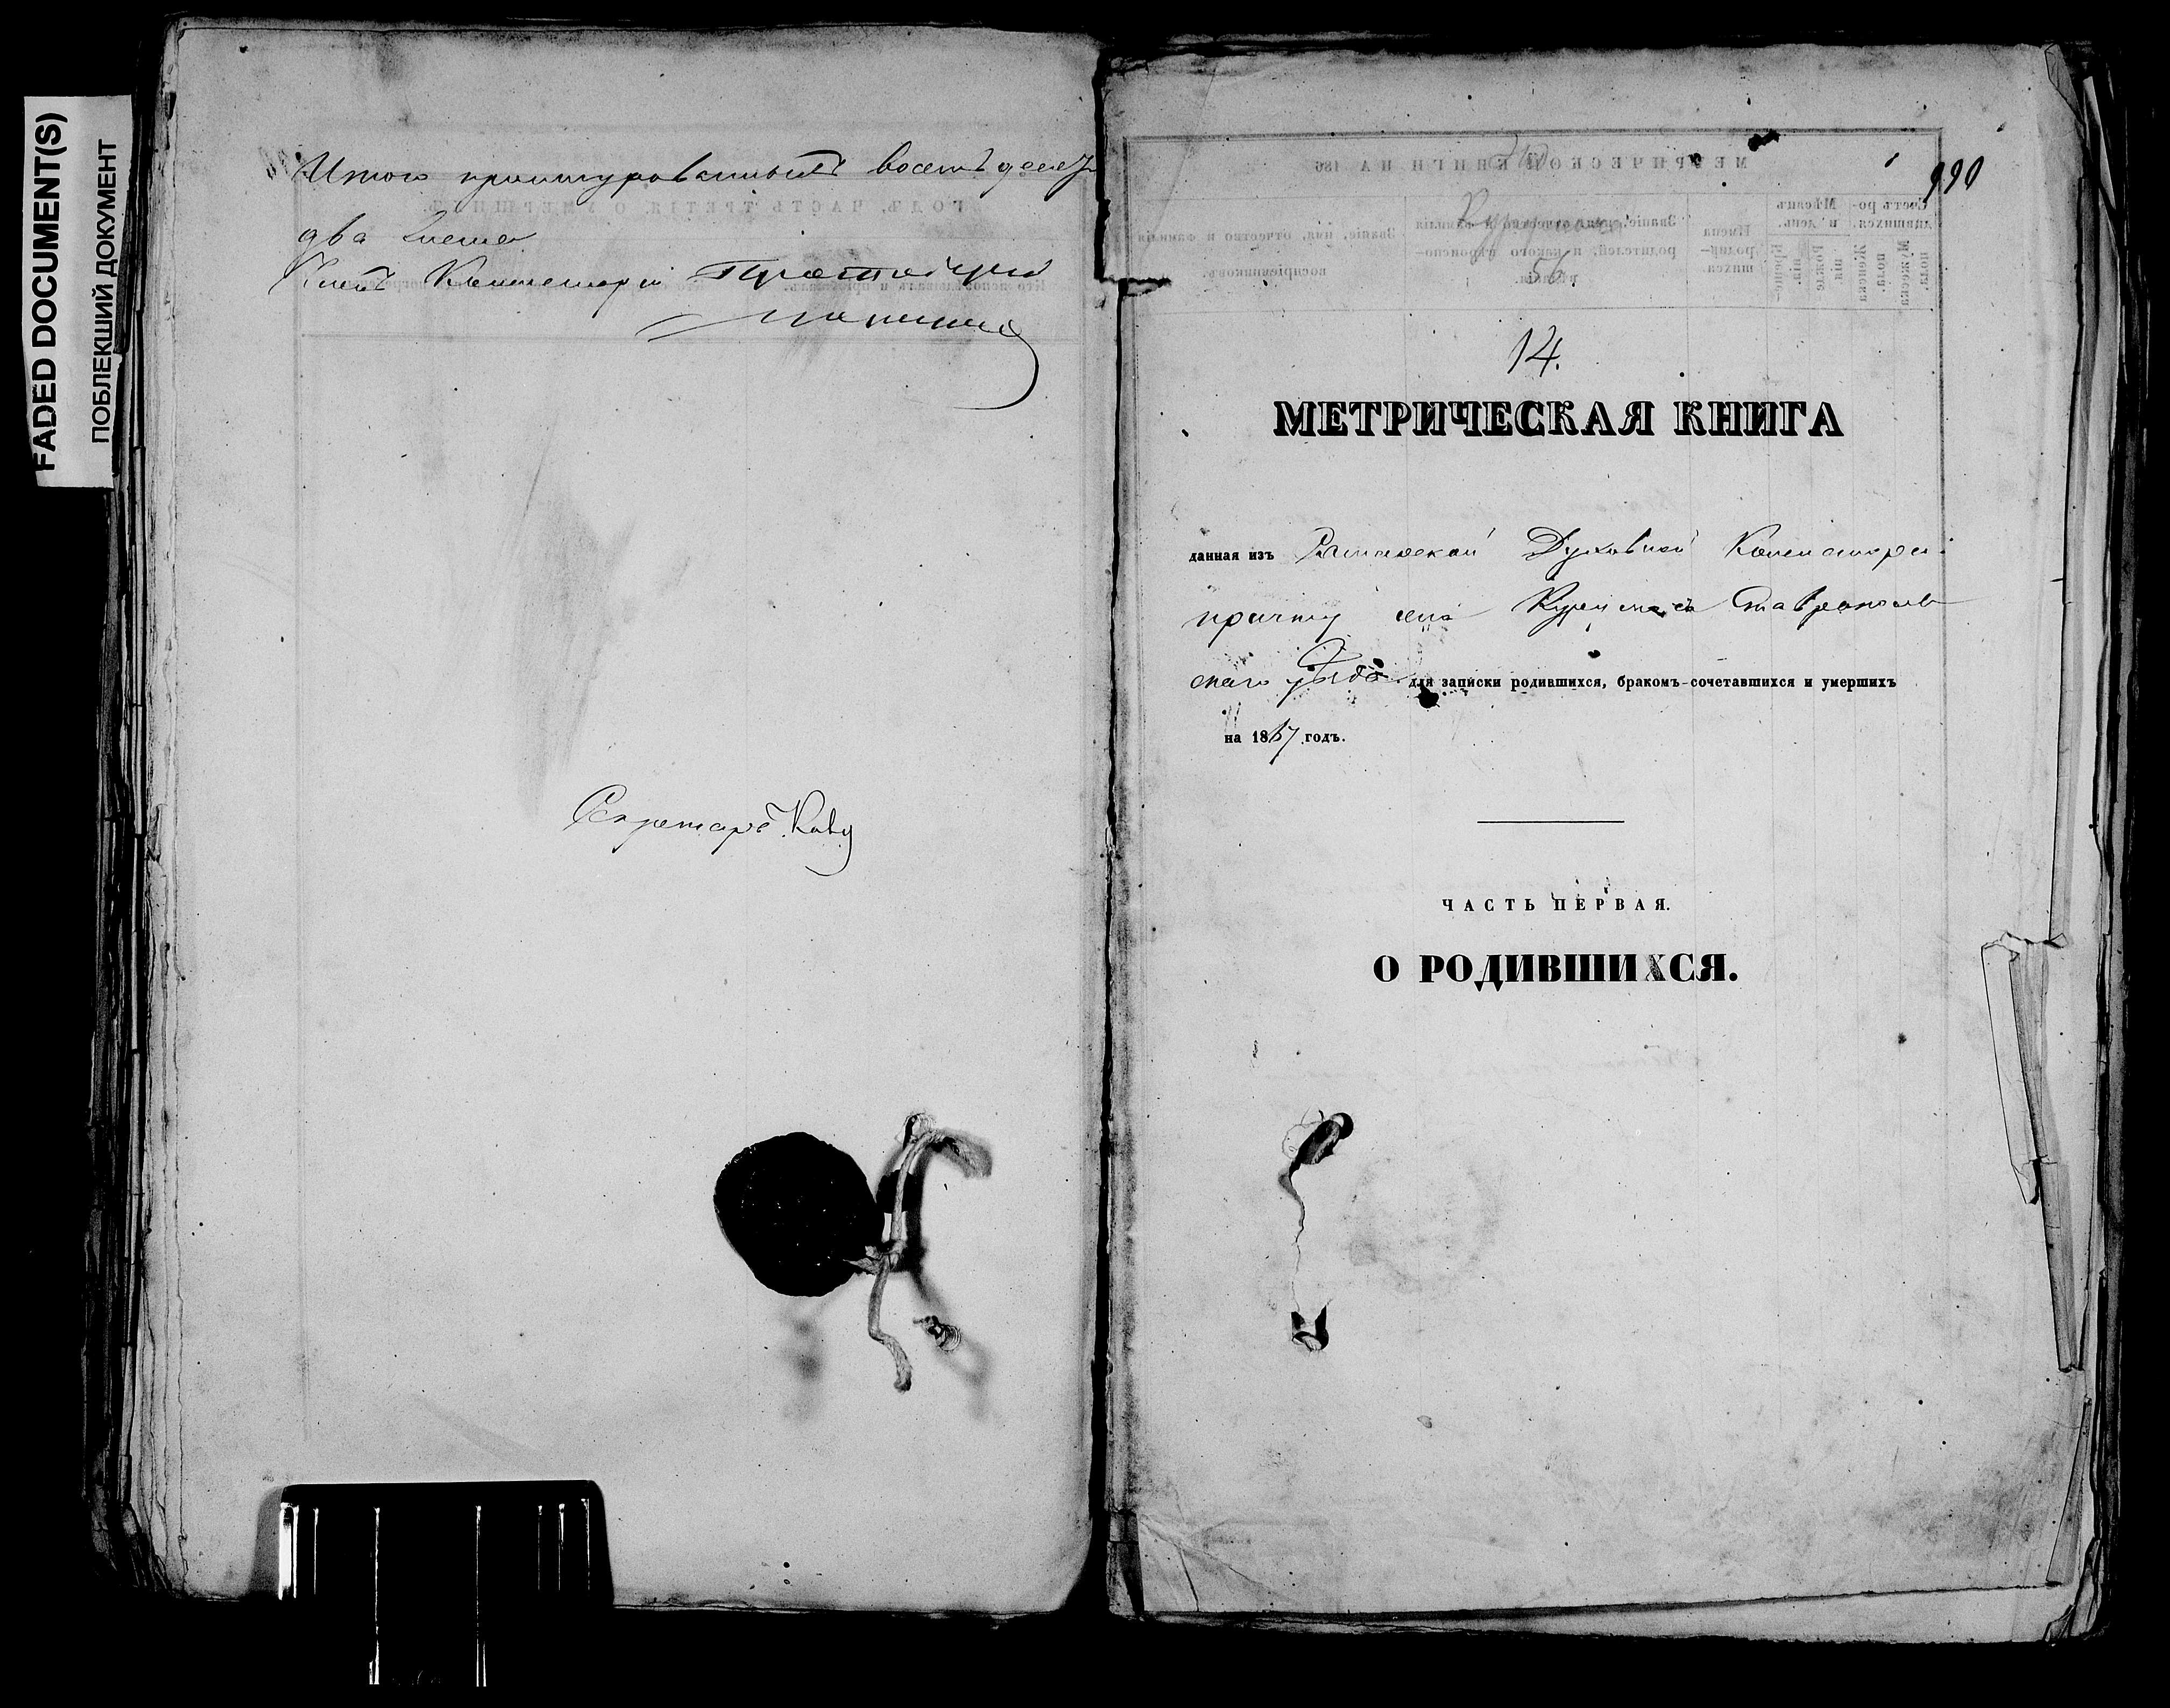 FADED DOCUMENT(S)
ПОБЛЕКШИЙ ДОКУМЕНТ
Итого пронумерованныхъ восемьдесятъ
два листа
Членъ Консисторіи Протоіерей
Секретарь
990
56.
14.
МЕТРИЧЕСКАЯ КНИГА
данная изъ Самарской Духовной Консисторіи
причту села Ставрополь
скаго уѣзда для записки родившихся, бракомъ-сочетавшихся и умершихъ
на 1867 годъ.
ЧАСТЬ ПЕРВАЯ.
О РОДИВШИХСЯ.